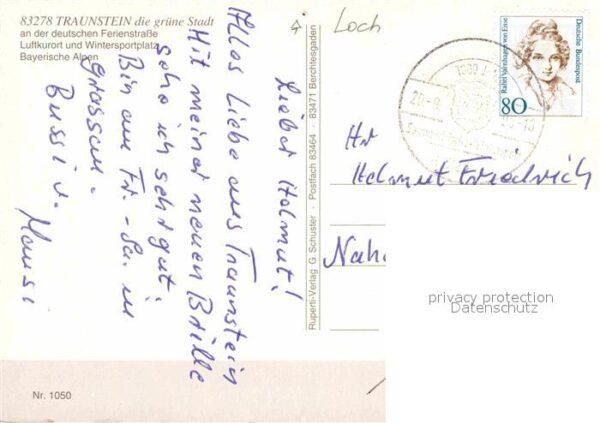 83278 TRAUNSTEIN die grüne Stadt
an der deutschen Ferienstraße
Luftkurort und Wintersportplatz
Bayerische Alpen
Lieber Helmut!
Alles Liebe aus Traunstein
Mit meiner neuen Brille
sehe ich sehr gut.
Bin am Fr. - Sa. in
Grassau.
Bussi v. Mausi
Nr. 1050
Ruperti-Verlag G. Schuster · Postfach 83464 · 83471 Berchtesgaden
Loch
Deutsche Bundespost
Rahel Varnhagen von Ense
80
Hr
Helmut Friedrich
privacy protection
Datenschutz